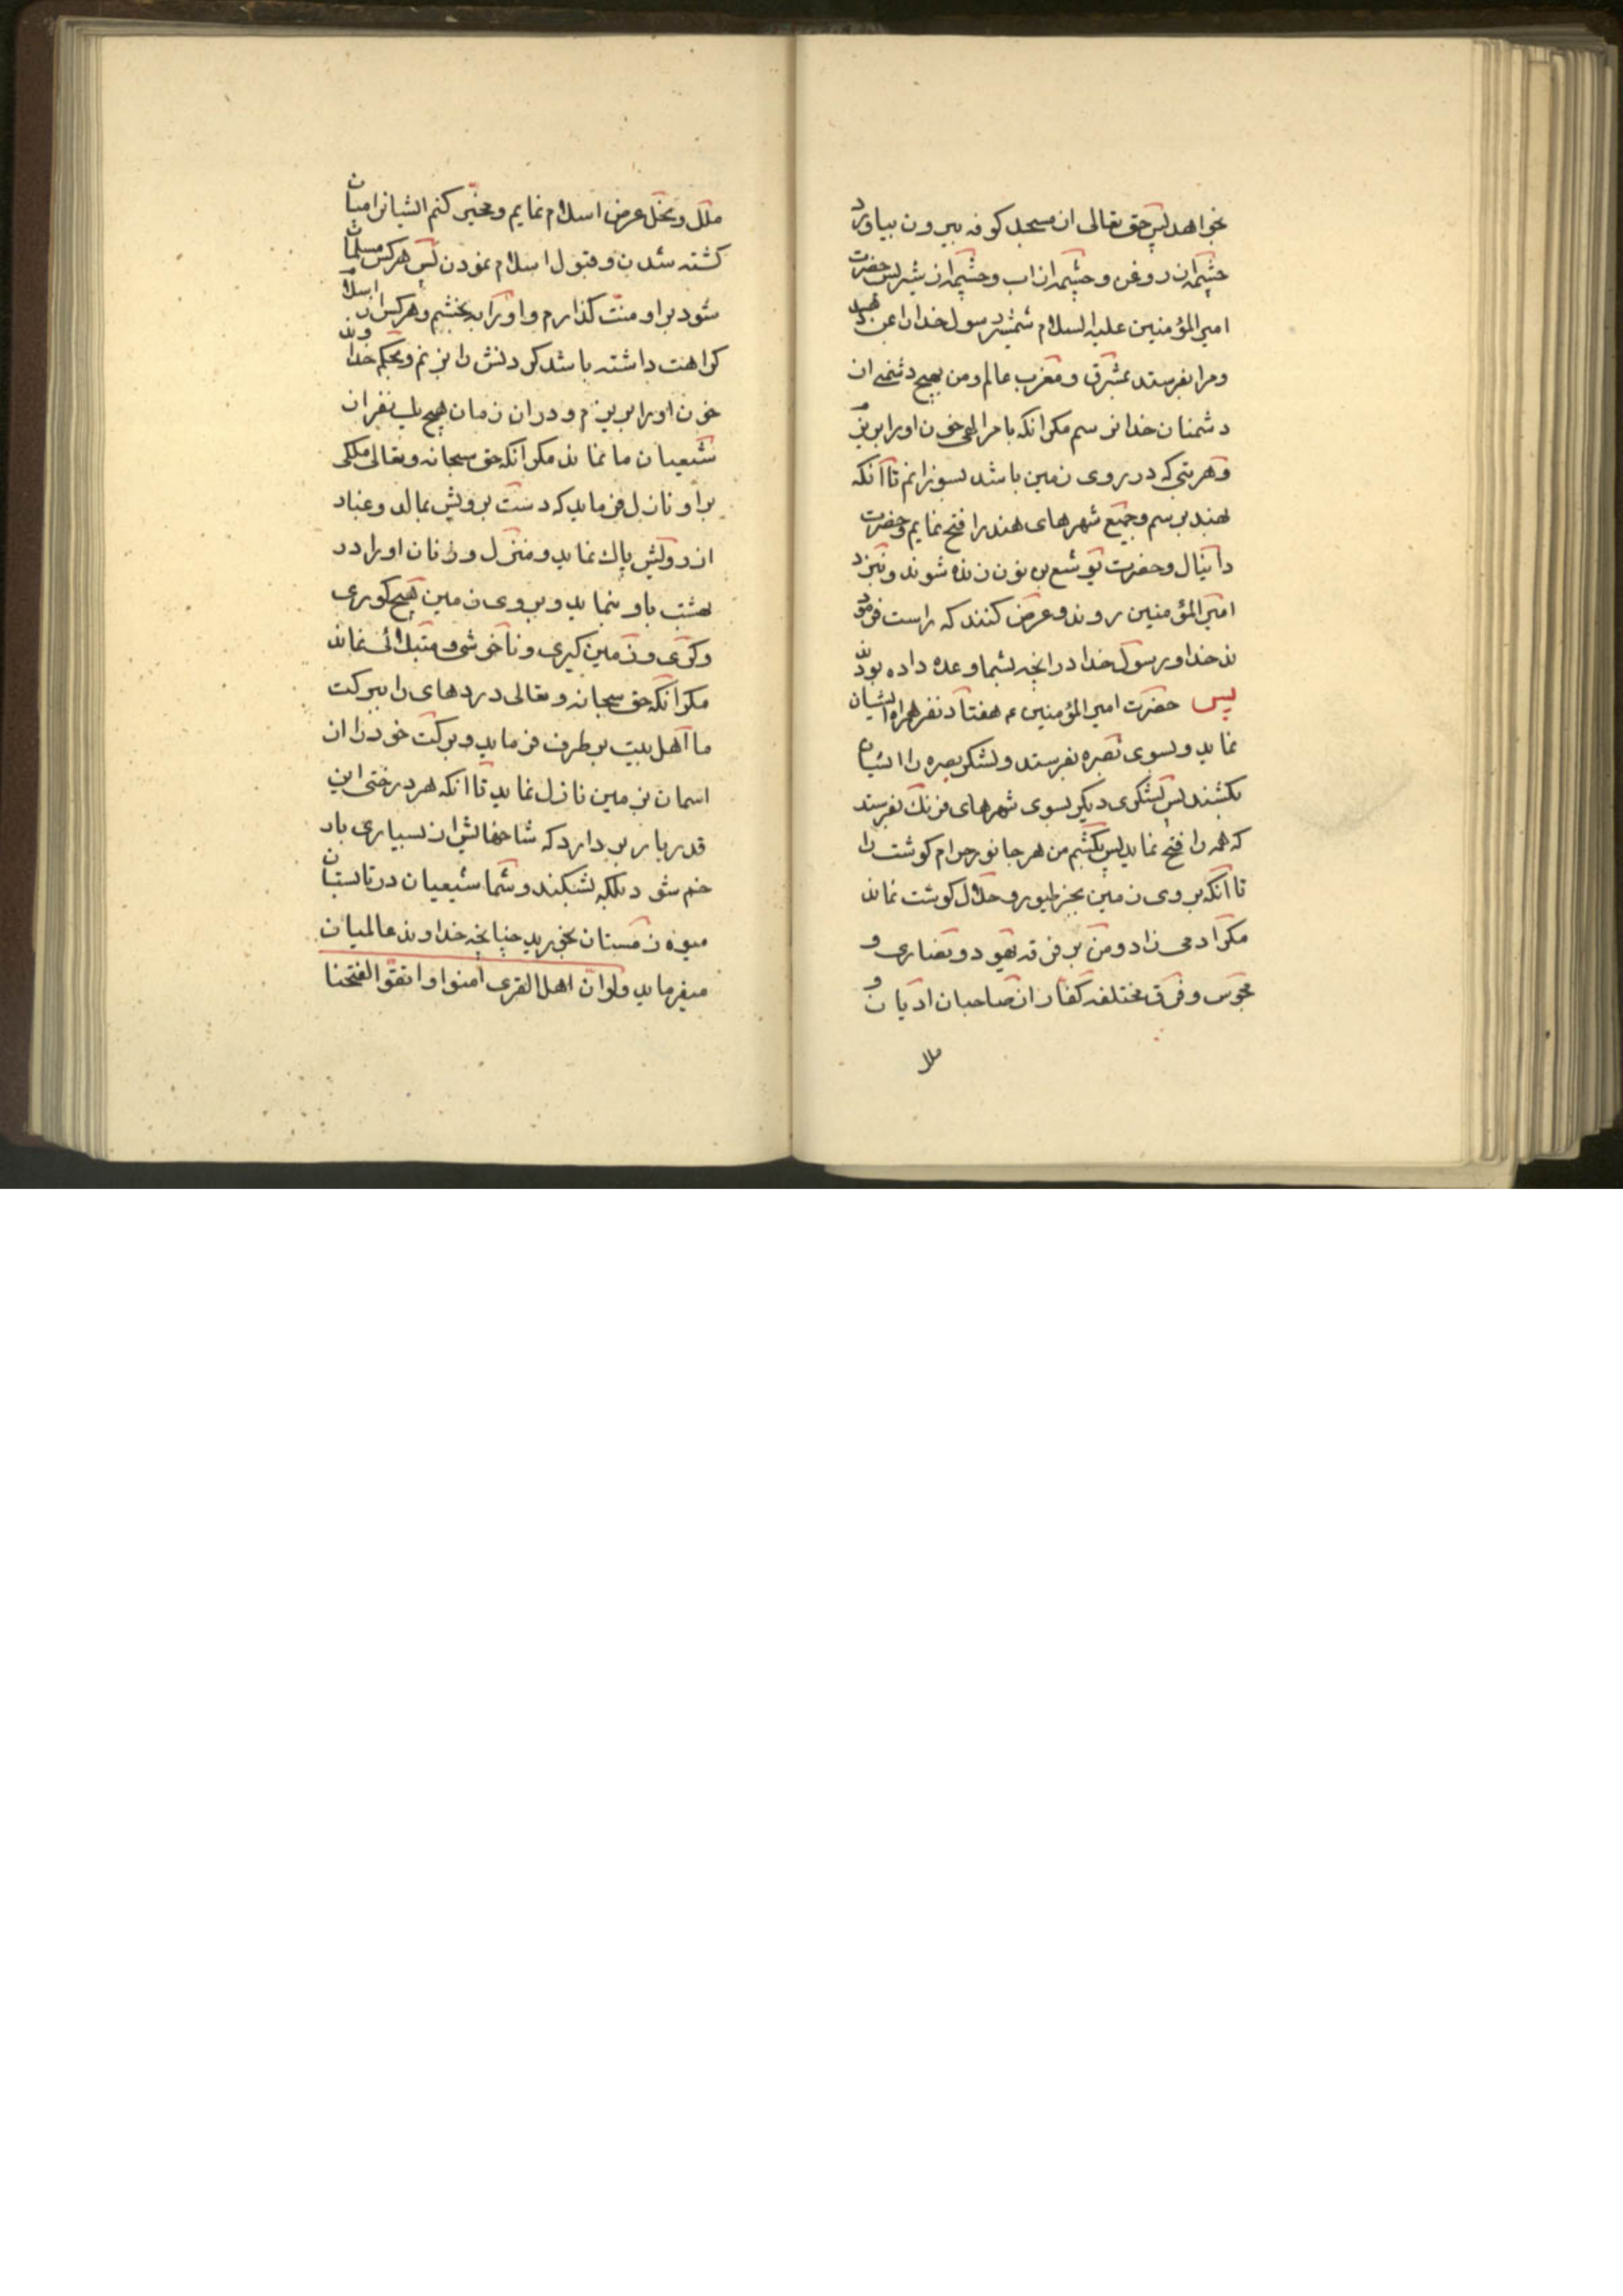 بخواهد پس حق تعالی از مسجد کوفه بیرون بیاورد
چشمه از روغن و چشمه از اب و چشمه از شیر پس حضرت
امیر المؤمنین علیه السلام شمشیر رسول خدا را بمن دهد
و مرا بفرستد بمشرق و مغرب عالم و من بهیچ دشمنی از
دشمنان خدا نرسم مکر انکه بامر الهی خون او را بریزم
و هر بتی که در روی زمین باشد بسوزانم تا آنکه
بهند برسم و جمیع شهرهای هند را فتح نمایم و حضرت
دانیال و حضرت یوشع بن نون زنده شوند و بنزد
امیر المؤمنین روند و عرض کنند که راست فرمود
ند خدا و رسول خدا در انچه بشما وعده داده بودند
پس حضرت امیر المؤمنین ع هفتاد نفر همراه ایشان
نماید و بسوی بصره بفرستد و لشکر بصره را ایشان
بکشند پس لشکری دیکر بسوی شهرهای فرنک بفرستد
که همه را فتح نماید پس بکشم من هر جانور حرام کوشت را
تا آنکه بروی زمین بجز طیور و حلال کوشت نماند
مکر ادمی زاد و من بر فرقه یهود و نصاری و
مجوس و فرق مختلفه کفار از صاحبان ادیان و
ملل
ملل و نحل عرض اسلام نمایم و مخیّر کنم ایشانرا میان
کشته شدن و قبول اسلام نمودن پس هر کس مسلمان
شود بر او منّت کذارم و او را بخشم و هر کس از اسلام
کراهت داشته باشد کردنش را بزنم و بحکم خداوند
خون او را بریزم و در ان زمان هیچ یک نفر از
شیعیان ما نماند مکر انکه حق سبحانه و تعالی ملکی
بر او نازل فرماید که دست برویش بمالد و غبار
از رویش پاک نماید و منزل و زنان او را در
بهشت باو بنماید و بر روی زمین هیچ کوری
و کری و زمین کیری و ناخوشی و مبتلائی نماند
مکر انکه حق سبحانه و تعالی دردهای را ببرکت
ما اهل بیت بر طرف فرماید و برکت خود را از
اسمان بزمین نازل نماید تا انکه هر درختی این
قدر بار بر دارد که شاخهایش از بسیاری بار
خم شود بلکه بشکند و شما شیعیان در تابستان
میوه زمستان بخورید چنانچه خداوند عالمیان
میفرماید ولو ان اهل القری آمنوا و اتقوا لفتحنا